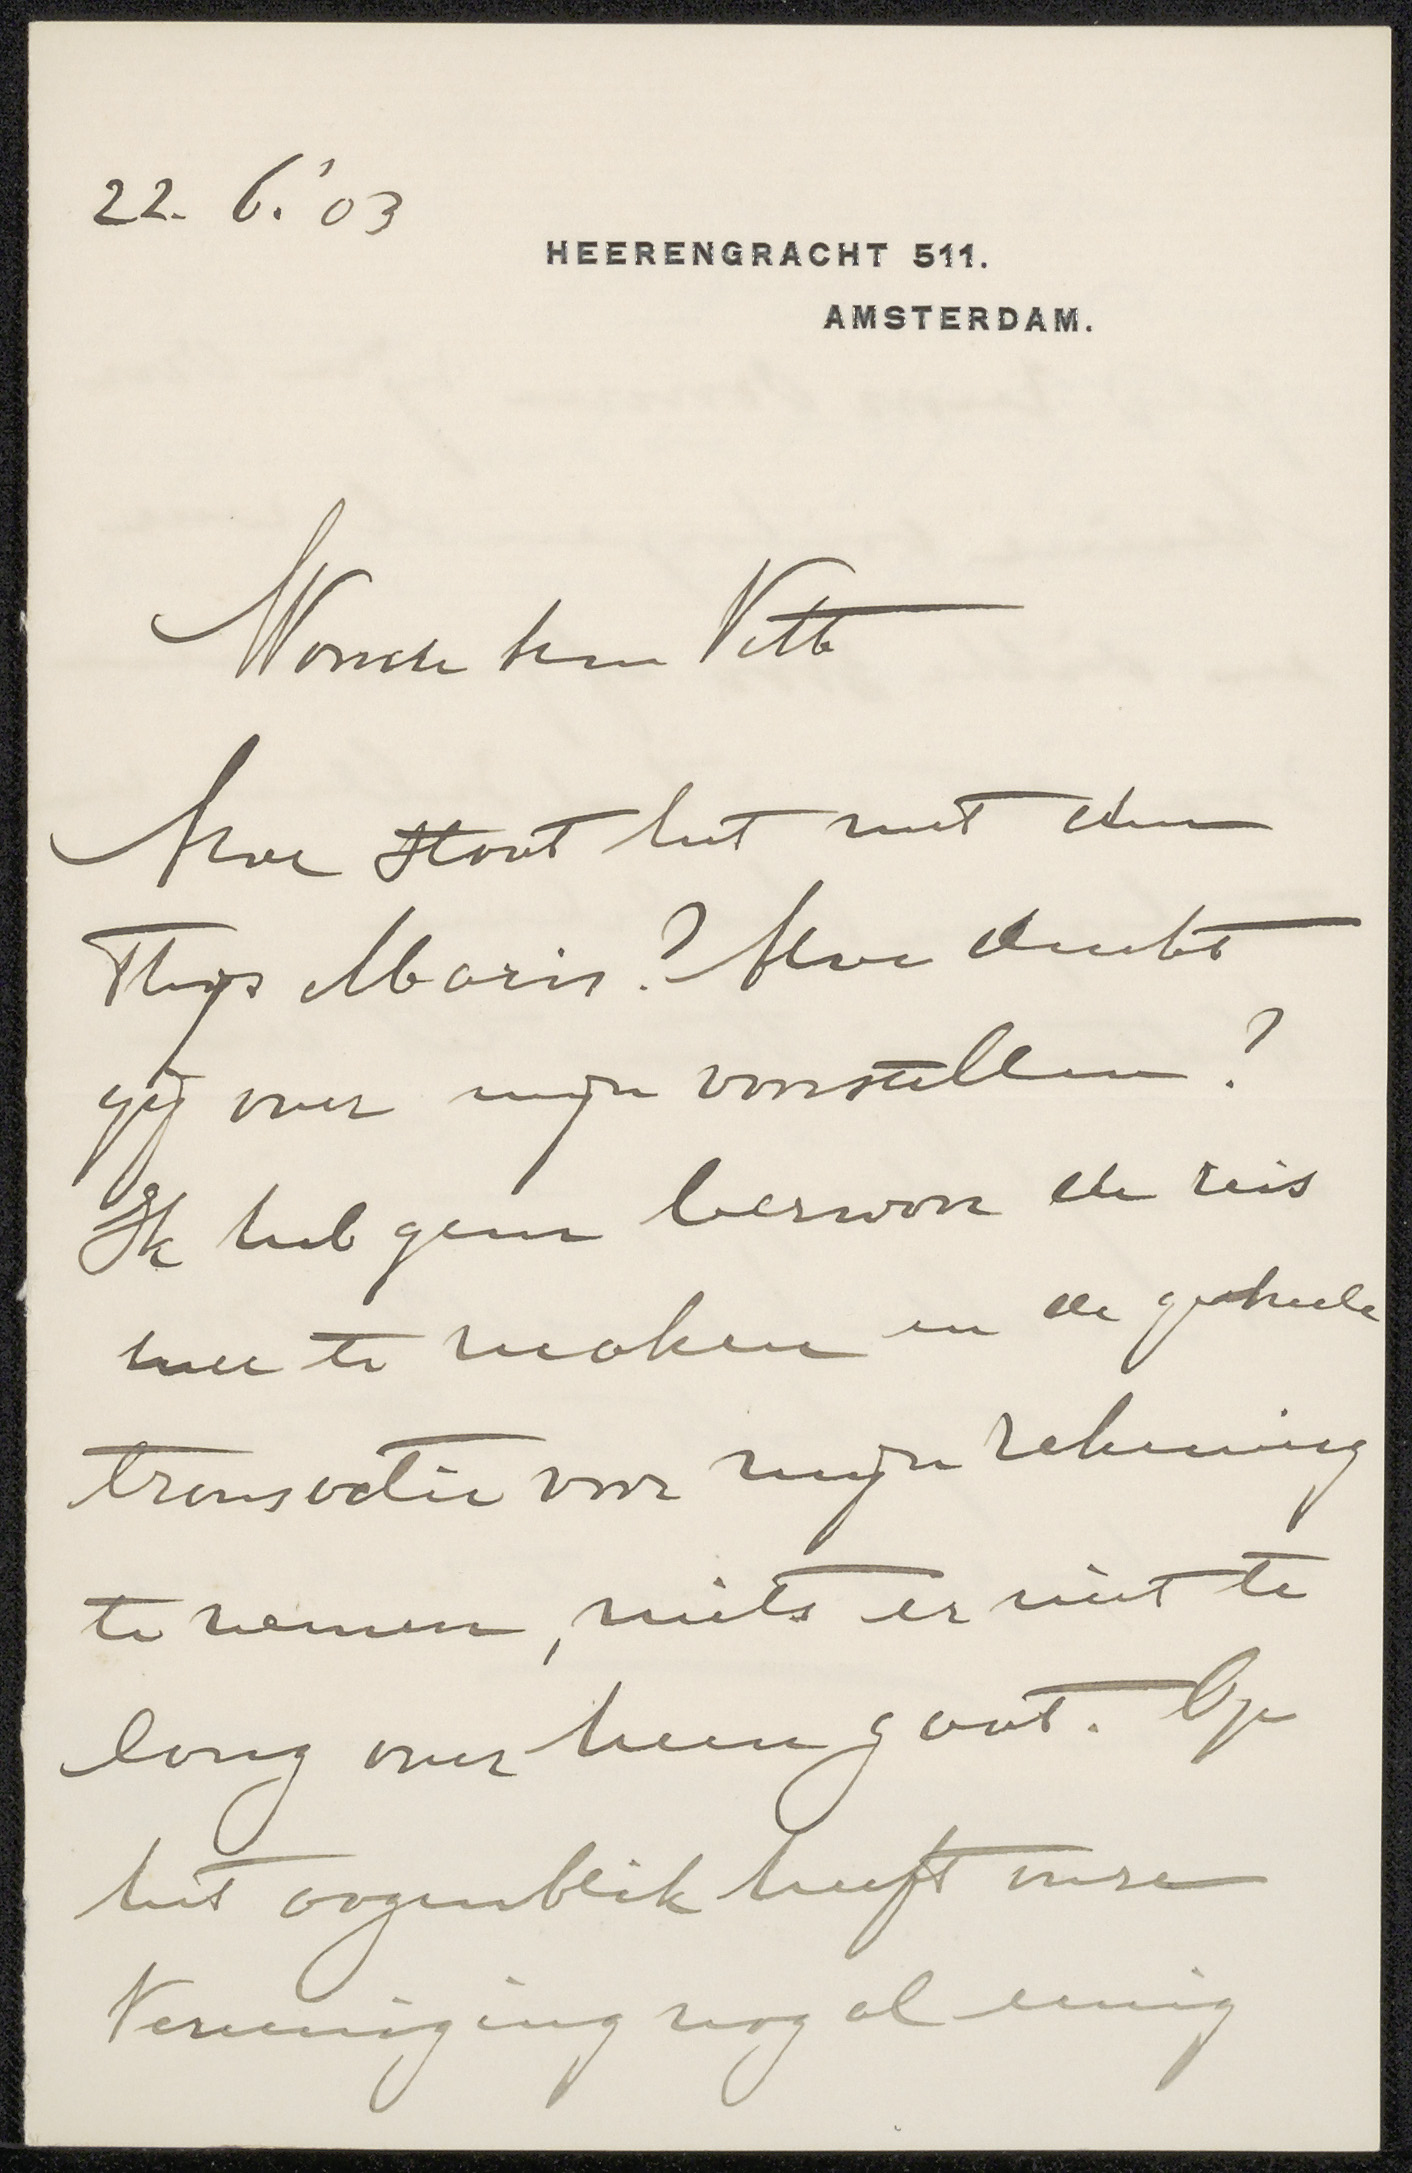 22. 6. '03
HEERENGRACHT 511.
AMSTERDAM.
Waarde heer Veth
Hoe staat het met den
Thijs Maris? Hoe denkt
gij over mijn voorstellen?
Ik heb geen bezwaar de reis
mee te maken en de geheele
transactie voor mijn rekening
te nemen, mits er niet te
lang over heen gaat. Op
het oogenblik heeft onze
Vereeniging nog al eenig